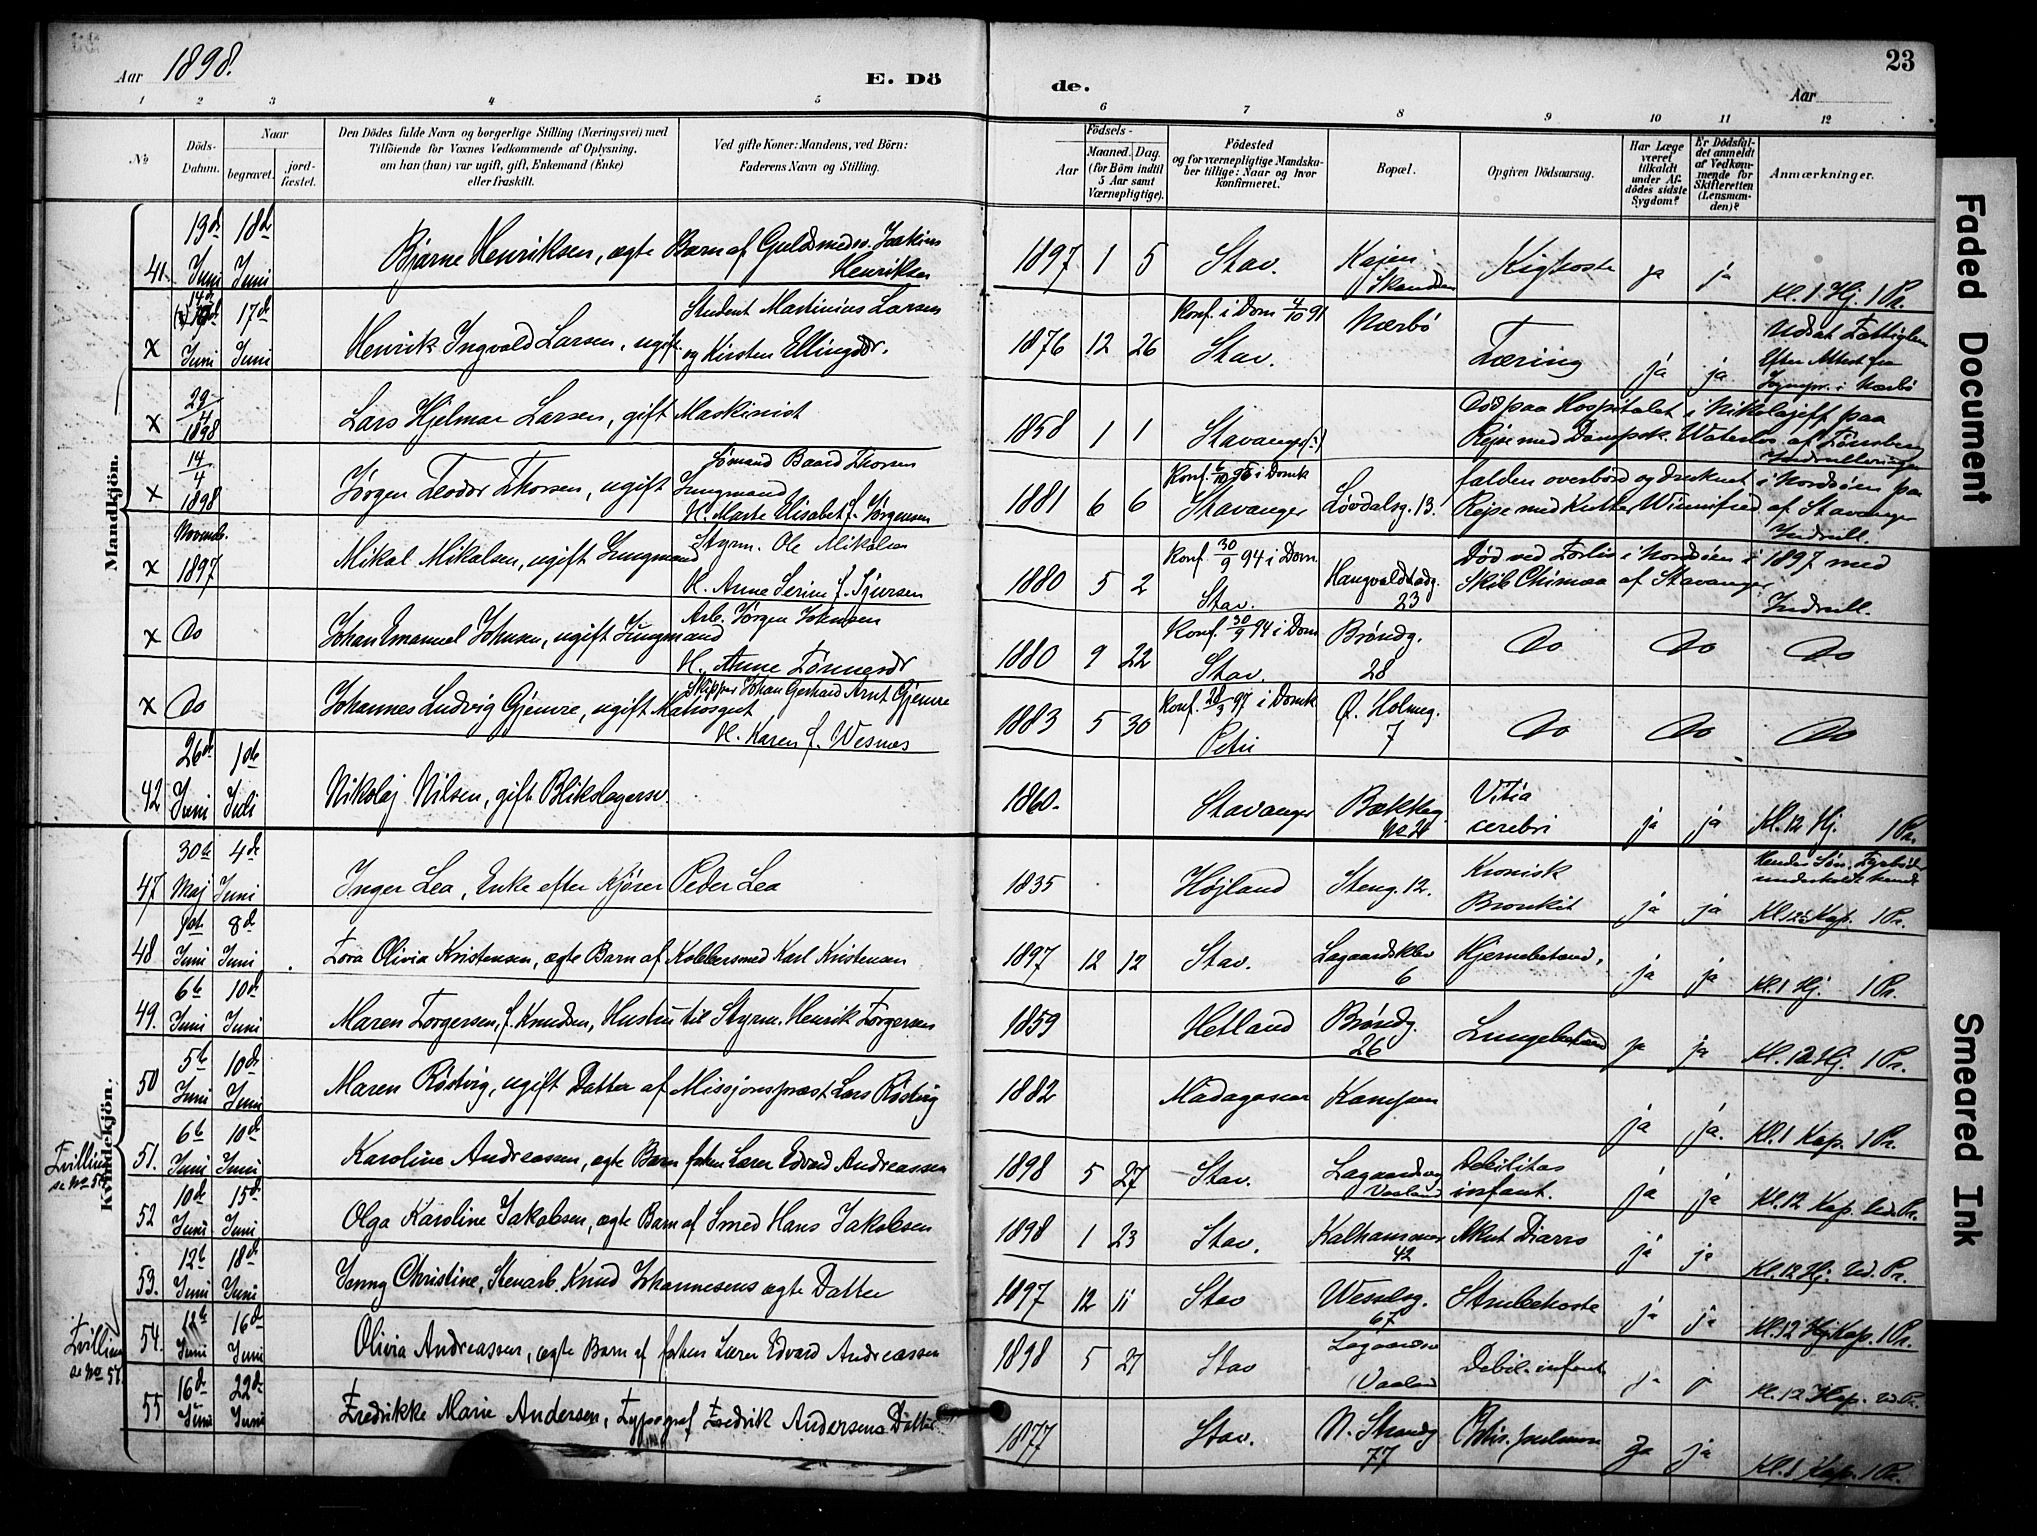 Aar 1898.
E. Dö
de.
Aar
23
1 2 3 4 5 6 7 8 9 10 11 12
No
Döds-Datum.
Naar
begravet.
jord-fæstet.
Den Dödes fulde Navn og borgerlige Stilling (Næringsvei) med
Tilföiende for Voxnes Vedkommende af Oplysning,
om han (hun) var ugift, gift, Enkemand (Enke)
eller fraskilt.
Ved gifte Koner: Mandens, ved Börn:
Faderens Navn og Stilling.
Födsels-
Aar
Maaned. Dag.
(for Börn indtil
5 Aar samt
Værnepligtige).
Födested
og for værnepligtige Mandska-
ber tillige: Naar og hvor
konfirmeret.
Bopæl.
Opgiven Dödsaarsag.
Har Læge
været
tilkaldt
under Af-
dödes sidste
Sygdom?
Er Dödsfal-
det anmeldt
af Vedkom-
mende for
Skifteretten
(Lensman-
den)?
Anmærkninger.
Mandkjön.
41. 13de Juni 18de Juni Bjarne Henriksen, ægte Barn af Guldsmedsv. Joakim Henriksen 1897 1 5 Stav. Kajen Kighoste ja ja Kl. 1 Hj. 1 Pr.
x 14de Juni 17de Juni Henrik Ingvald Larsen, ugift Student Martinius Larsen og Kirsten Ellingsdr. 1876 12 26 Konf. i Dom 4/10 91 Stav. Nærbö Tæring ja ja
x 29/4 1898 Lars Hjelmar Larsen, gift Maskinist 1858 1 1 Stavanger (?) Död paa Hospitalet i Nikolajeff paa Rejse med Dampsk. Waterloo af Tönsberg
x 14/4 1898 Jörgen Teodor Thorsen, ugift Jungmand Sömand Baard Thorsen H. Marte Elisabet f. Jörgensen 1881 6 6 Konf. 6/10 95 i Domk Stavanger Lövdalsg. 13. falden overbord og druknet i Nordsöen paa Rejse med Kutter Winnifred af Stavanger Indrull.
x Novemb. 1897 Mikal Mikalsen, ugift Jungmand Styrm. Ole Mikalsen H. Anne Serine f. Sjursen 1880 5 2 Konf. 30/9 94 i Dom. Stav. Haugvaldstadg. 23 Död ved Forlis i Nordsöen i 1897 med Skib Chimaa af Stavanger Indrull.
x Do Johan Emanuel Johnsen, ugift Jungmand Arb. Jörgen Johnsen H. Anne Tönnesdr 1880 9 22 Konf. 30/9 94 i Dom Stav. Bröndg. 28 Do Do Do
x Do Johannes Ludvig Gjemre, ugift Matrosgut Skipper Johan Gerhard Arnt Gjemre H. Karen f. Wesnes 1883 5 30 Konf. 28/3 97 i Domk Petri Ö. Holmeg. 7 Do Do Do
42 26de Juni 1ste Juli Nikolaj Nilsen, gift Blikslagersv. 1860. Stavanger Bækkeg. No 24 Vitia cerebri ja ja Kl. 12 Hj. 1 Pr.
Kvindekjön.
47 30te Maj 4de Juni Inger Lea, Enke efter Kjörer Peder Lea 1835 Höjland Steng. 12. Kronisk Bronkit ja ja Kl. 12 Kap. 1 Pr.
48 1st Juni 8de Juni Tora Olivia Kristensen, ægte Barn af Kobbersmed Karl Kristensen 1897 12 12 Stav. Lagaardsklev 6 Hjernebetænd. ja ja Kl. 1 Hj. 1 Pr.
49. 6te Juni 10de Juni Maren Torgersen, f. Knudsen, Hustru til Styrm. Henrik Torgersen 1859 Hetland Bröndg. 26 Lungebetænd ja ja Kl. 12 Hj. 1 Pr.
50 5te Juni 10de Juni Maren Röstvig, ugift Datter af Missjonsprest Lars Röstvig 1882 Madagascar Kampen ja ja. Kl. 1 Kap. 1 Pr.
Tvilling se No 54
51. 6te Juni 10de Juni Karoline Andreassen, ægte Barn af Lærer Edvard Andreassen 1898 5 27 Stav. Lagaardsvej Vaaland Debilitas infant. ja ja Kl. 12 Kap. Ud. Pr.
52 10de Juni 15de Juni Olga Karoline Jakobsen, ægte Barn af Smed Hans Jakobsen 1898 1 23 Stav. Kalhammer 42 Akut Diarre ja ja Kl. 12 Hj. Ud. Pr.
53. 12te Juni 18de Juni Jenny Christine, Stenarb. Knud Johannesens ægte Datter 1897 12 11 Stav Wesselsg. 67 Strubehoste ja ja Kl. 12 Hj. Kap. 1 Pr.
Tvilling se No 51.
54. 12te Juni 16de Juni Olivia Andreassen, ægte Barn af Lærer Edvard Andreassen 1898 5 27 Stav Lagaardsv Vaaland Debil. infant. ja j Kl. 12 Kap. Ud. Pr.
55 16de Juni 22de Juni Fredrikke Marie Andersen, Typograf Fredrik Andersens Datter 1877 Stav. N. Strandg 77 Phtis. pulmon ja ja Kl. 1 Kap. 1 Pr.
Faded Document
Smeared Ink